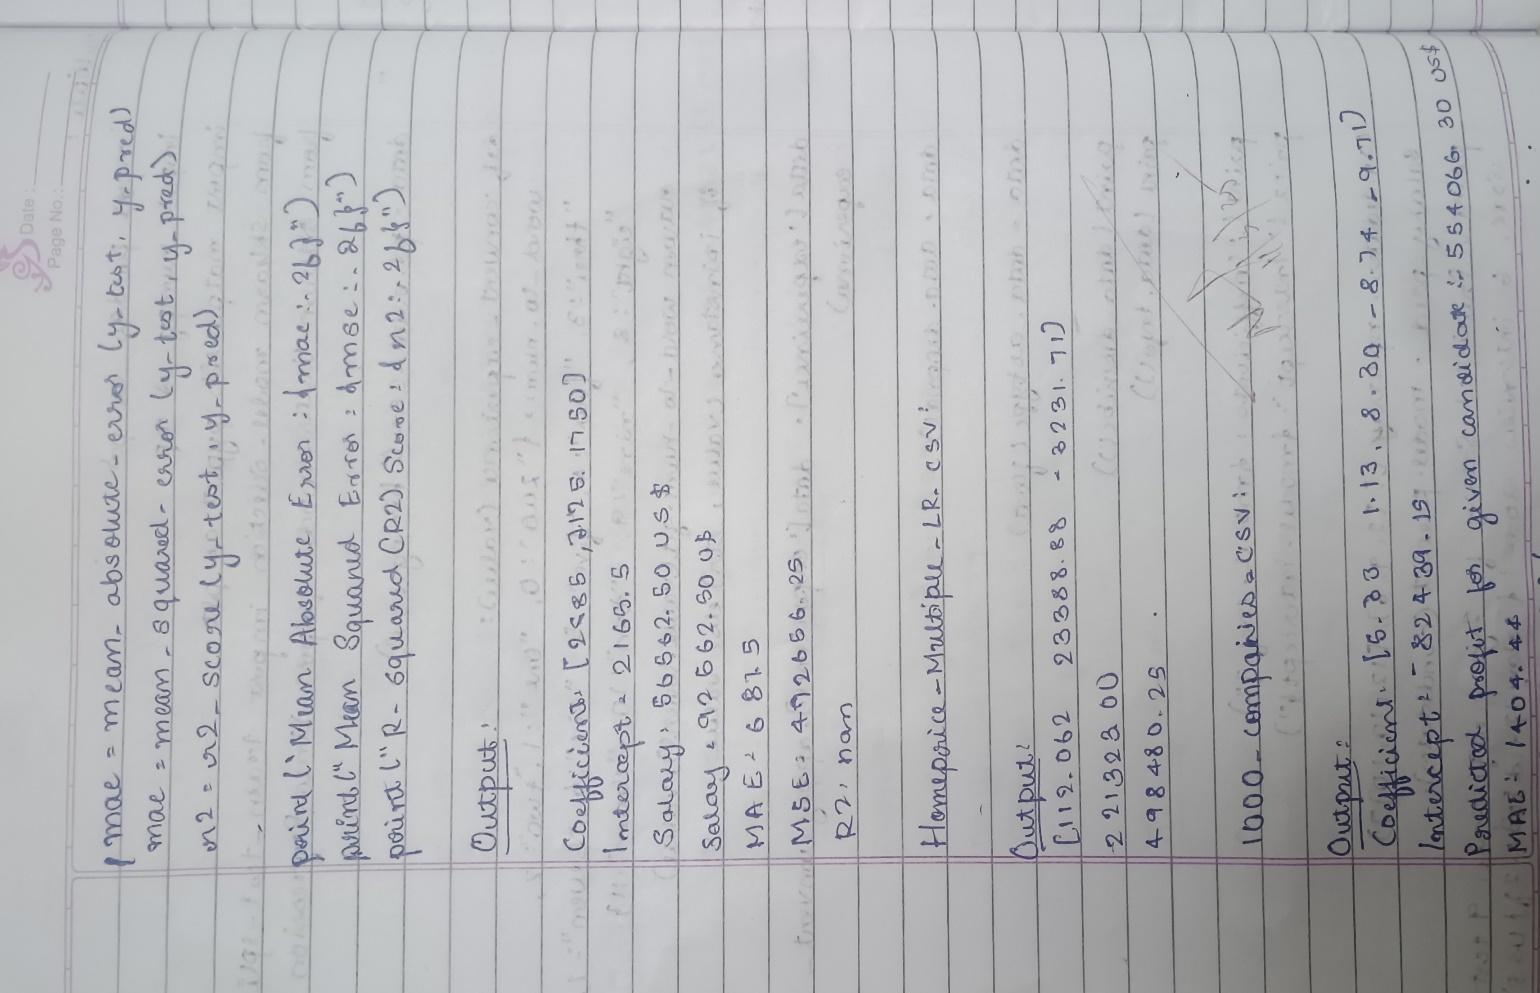 Date:
Page No.:
mae = mean_absolute_error (y-test, y-pred)
mse = mean_squared_error (y-test, y-pred)
r2 = r2_score (y-test, y-pred)
print("Mean Absolute Error : {mae:.2f}")
print("Mean Squared Error : {mse:.2f}")
print("R-squared (R2) Score: {r2:.2f}")
Output:
Intercept = 2165.5
Salary: 56562.50 US$
Salary = 92562.50 U$
MAE = 687.5
MSE = 492656.25
R2: nan
Homeprice-Multiple-LR.csv:
Output:
[112.062 23388.88 -3231.71]
221323 00
498480.25
1000-companies.csv:
Output:
Coefficient:
Intercept = -82439.15
Predicted profit for given candidate : 554066.30 US$
MAE: 1404.44